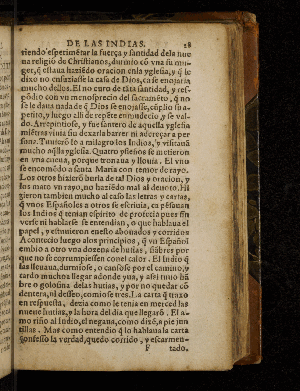 DE LAS INDIAS. 28
riendo esperimẽtar la fuerça y santidad dela nue
ua religiõ de Christianos, durmio cõ vna su mu-
ger, q̃ estaua haziẽdo oracion enla yglesia, y q̃ le
dixo no ensuziasse la casa de Dios, ca se enojaria
mucho dellos. El no curo de tãta santidad, y res-
põdio con vn menosprecio del sacramẽto, q̃ no
se le daua nada de q̃ Dios se enojasse, cũplio su a-
petito, y luego alli de repẽte enmudecio, y se val-
do. Arrepintiose, y fue santero de aquella yglesia
miẽtras viuia sin dexarla barrer ni adereçar a per
sona. Tuuierõ lo a milagro los Indios, y visitauã
mucho aq̃lla yglesia. Quatro yseños se metieron
en vna cueua, porque tronaua y llouia. El vno
se encomẽdo a santa Maria con temor de rayo.
Los otros hizierõ burla de tal Dios y oracion, y
los mato vn rayo, no haziẽdo mal al deuoto. Hi
zieron tambien mucho al caso las letras y cartas,
q̃ vnos Españoles a otros se escriuiã, ca pensauan
los Indios q̃ tenian espirito de profecia pues sin
verse ni hablarse se entendian, o que hablaua el
papel, y estuuieron enesto abouados y corridos
Acontecio luego alos principios, q̃ vn Español
embio a otro vna dozena de hutias, fiãbres por
que no se corrumpiessen conel calor. El Indio q̃
las lleuaua, durmiose, o cansose por el camino, y
tardo mucho a llegar adonde yua, y assi tuuo hã
bre o golosina delas hutias, y por no quedar cõ
dentera, ni desseo, comiose tres. La carta q̃ traxo
en respuesta, dezia como le tenia en merced las
nueue hutias, y la hora del dia que llegarõ. El a-
mo riño al Indio, el negaua, como dizẽ, a pie jun
tillas. Mas como entendio q̃ lo hablaua la carta
confesso la verdad, quedo corrido, y escarmen-
F tado.